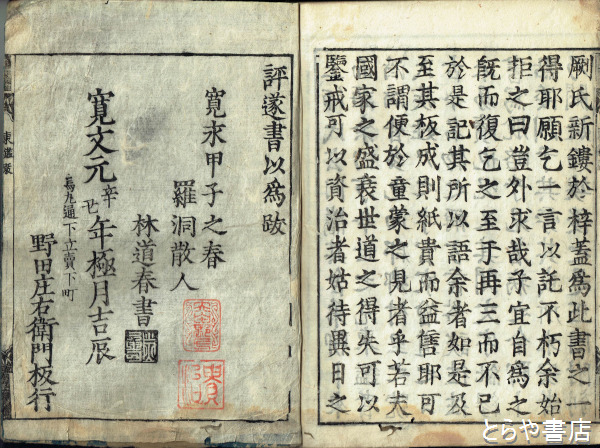 劂氏新鏤於梓蓋為此書之一
得耶願乞一言以託不朽余始
拒之曰豈外求哉子宜自為之
既而復乞之至于再三而不已
於是記其所以語余者如是及
至其板成則紙貴而益售耶可
不謂便於童蒙之見者乎若夫
國家之盛衰世道之得失可以
鑒戒可以資治者姑待異日之
評遂書以為跋
寛永甲子之春
羅洞散人
林道春書
寛文元辛丑年極月吉辰
烏丸通下立賣下町
野田庄右衛門板行
東鑑跋
とらや書店